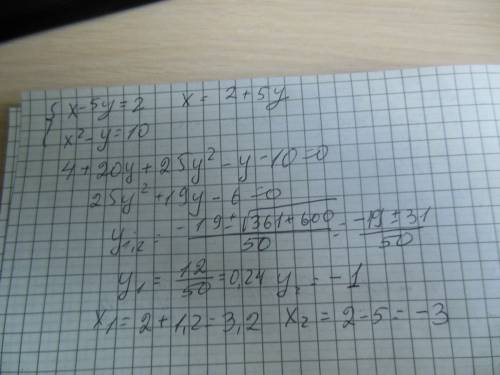 { x-5y=2 x= 2+5y
x²-y=10
4+20y+25y²-y-10=0
25y²+19y-6=0
y₁,₂= (-19±√(361+600))/50 = (-19±31)/50
y₁= 12/50 =0,24 y₂=-1
x₁=2+1,2=3,2 x₂=2-5=-3